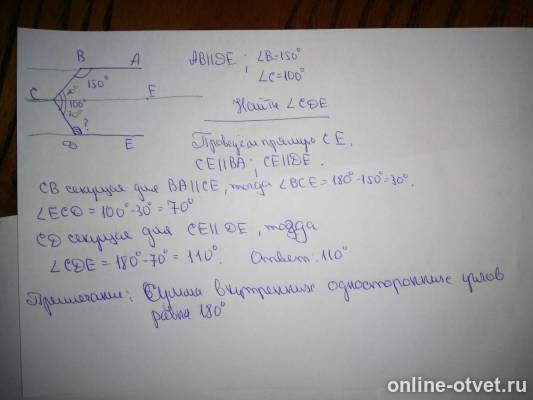 B A
150°
C 30° E
100°
70°
?
D E
AB||DE ; ∠B=150°
∠C=100°
Найти ∠CDE
Проведем прямую CE.
CE||BA ; CE||DE.
CB секущая для BA||CE, тогда ∠BCE = 180°-150°=30°.
∠ECD = 100°-30° = 70°
CD секущая для CE||DE, тогда
∠CDE = 180°-70° = 110°. Ответ 110°
Примечание: Сумма внутренних односторонних углов
равна 180°
online-otvet.ru